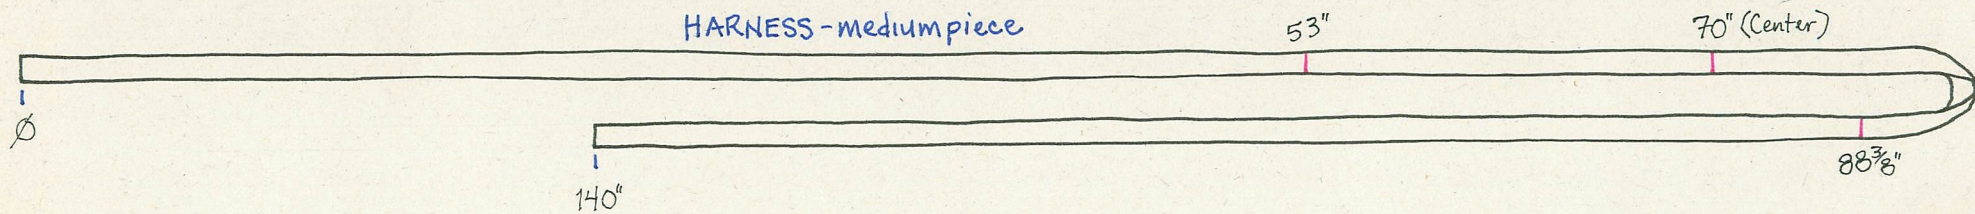 HARNESS - medium piece
53"
70" (Center)
Ø
88 3/8"
140"